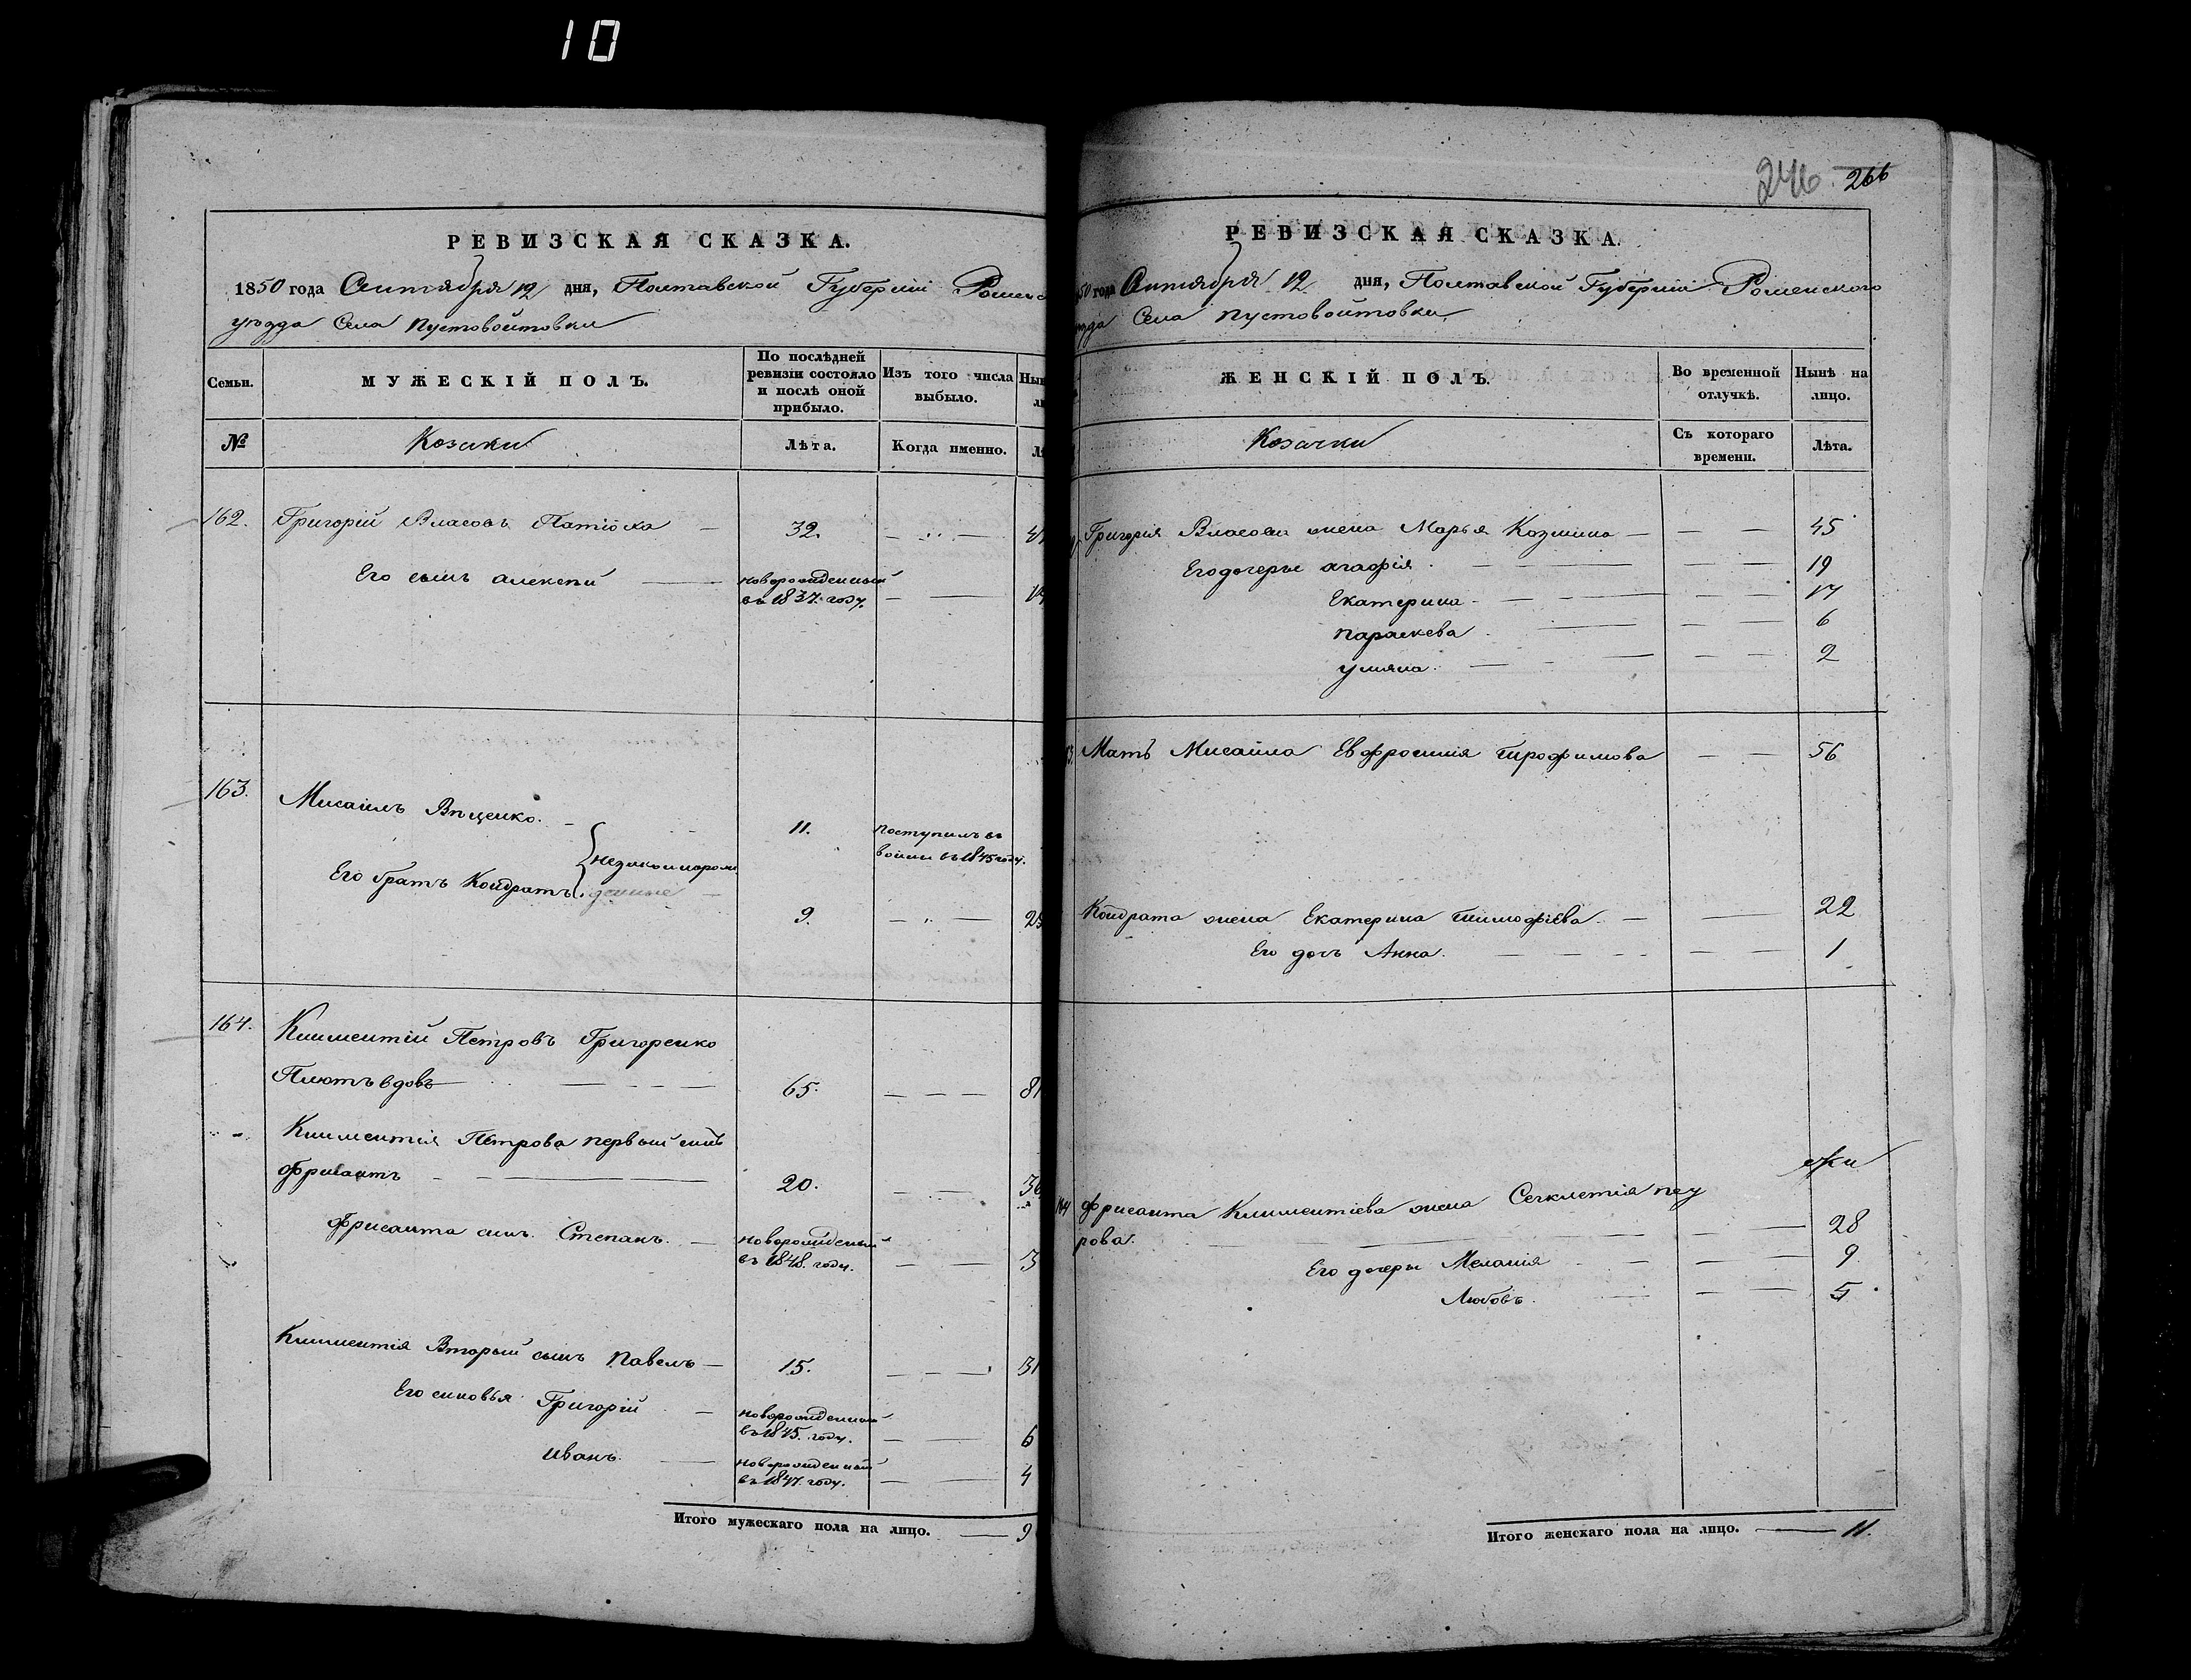 10
РЕВИЗСКАЯ СКАЗКА.
1850 года Сентября 12 дня, Полтавской Губернiи Роменс
уѣзда Села Пустовойтовки
Семьи.
МУЖЕСКIЙ ПОЛЪ.
По послѣдней
ревизiи состояло
и послѣ оной
прибыло.
Изъ того числа
выбыло.
№
Козаки
Лѣта.
Когда именно.
162.
Григорiй Власовъ
32.
Его сынъ Алексѣй
новорожденный
въ 1837. году.
163.
Мисаилъ
11.
поступилъ въ
въ 1845 году.
Его братъ Кондратъ
незаконнорож
денные
9.
164.
Климентiй Петровъ Григоренко
вдовъ
65.
81
Климентiя Петрова первый сынъ
20.
сынъ Степанъ.
новорожденый
въ 1848. году.
3
Климентiя Вторый сынъ Павелъ
15.
31
Его сыновья Григорiй
новорожденный
въ 1845. году.
6
Иванъ.
новорожденный
въ 1847. году.
4
Итого мужескаго пола на лицо. 9
246 266
РЕВИЗСКАЯ СКАЗКА.
50 года Сентября 12 дня, Полтавской Губернiи Роменского
ѣзда Села Пустовойтовки
ЖЕНСКIЙ ПОЛЪ.
Во временной
отлучкѣ.
Нынѣ на
лицо.
Козачки
Съ котораго
времени.
Лѣта.
Григорiя Власова жена Марья Козмина 45
Его дочеры Агафiя 19
Екатерина 17
Параскева 6
Улияна. 2
Мать Мисаила Евфросинiя Трофимова 56
Кондрата жена Екатерина Тимофiева 22
Его дочъ Анна. 1
164
Климентiева жена
рова. 28
Его дочеры Меланiя 9
Любовъ. 5
Итого женскаго пола на лицо. 11.